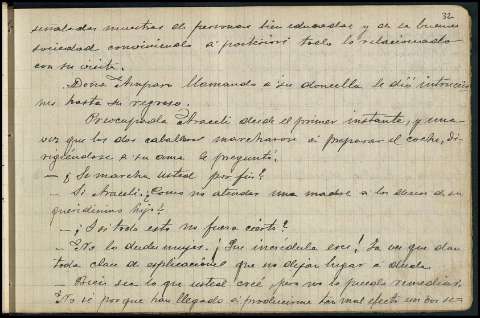 32
señaladas muestras de personas bien educadas y de la buena
sociedad conviniendo a posteriori todo lo relacionado
con su visita.
Doña Amparo llamando a su doncella le dió instruccio
nes hasta su regreso.
Preocupada Araceli desde el primer instante, y una
vez que los dos caballeros marcharon á preparar el coche, di-
rigiéndose a su ama le preguntó.
— ¿Se marcha usted por fin?
— Si Araceli. ¿Como no atender una madre a los deseos de su
queridísima hija?
— ¿I si todo esto no fuera cierto?
— No lo dudes mujer. ¡Que incrédula eres! Ya ves que dan
toda clase de explicaciones que no dejan lugar á duda.
Bien sea lo que usted creé, pero no lo puedo remediar.
No sé porque han llegado á producirme tan mal efecto